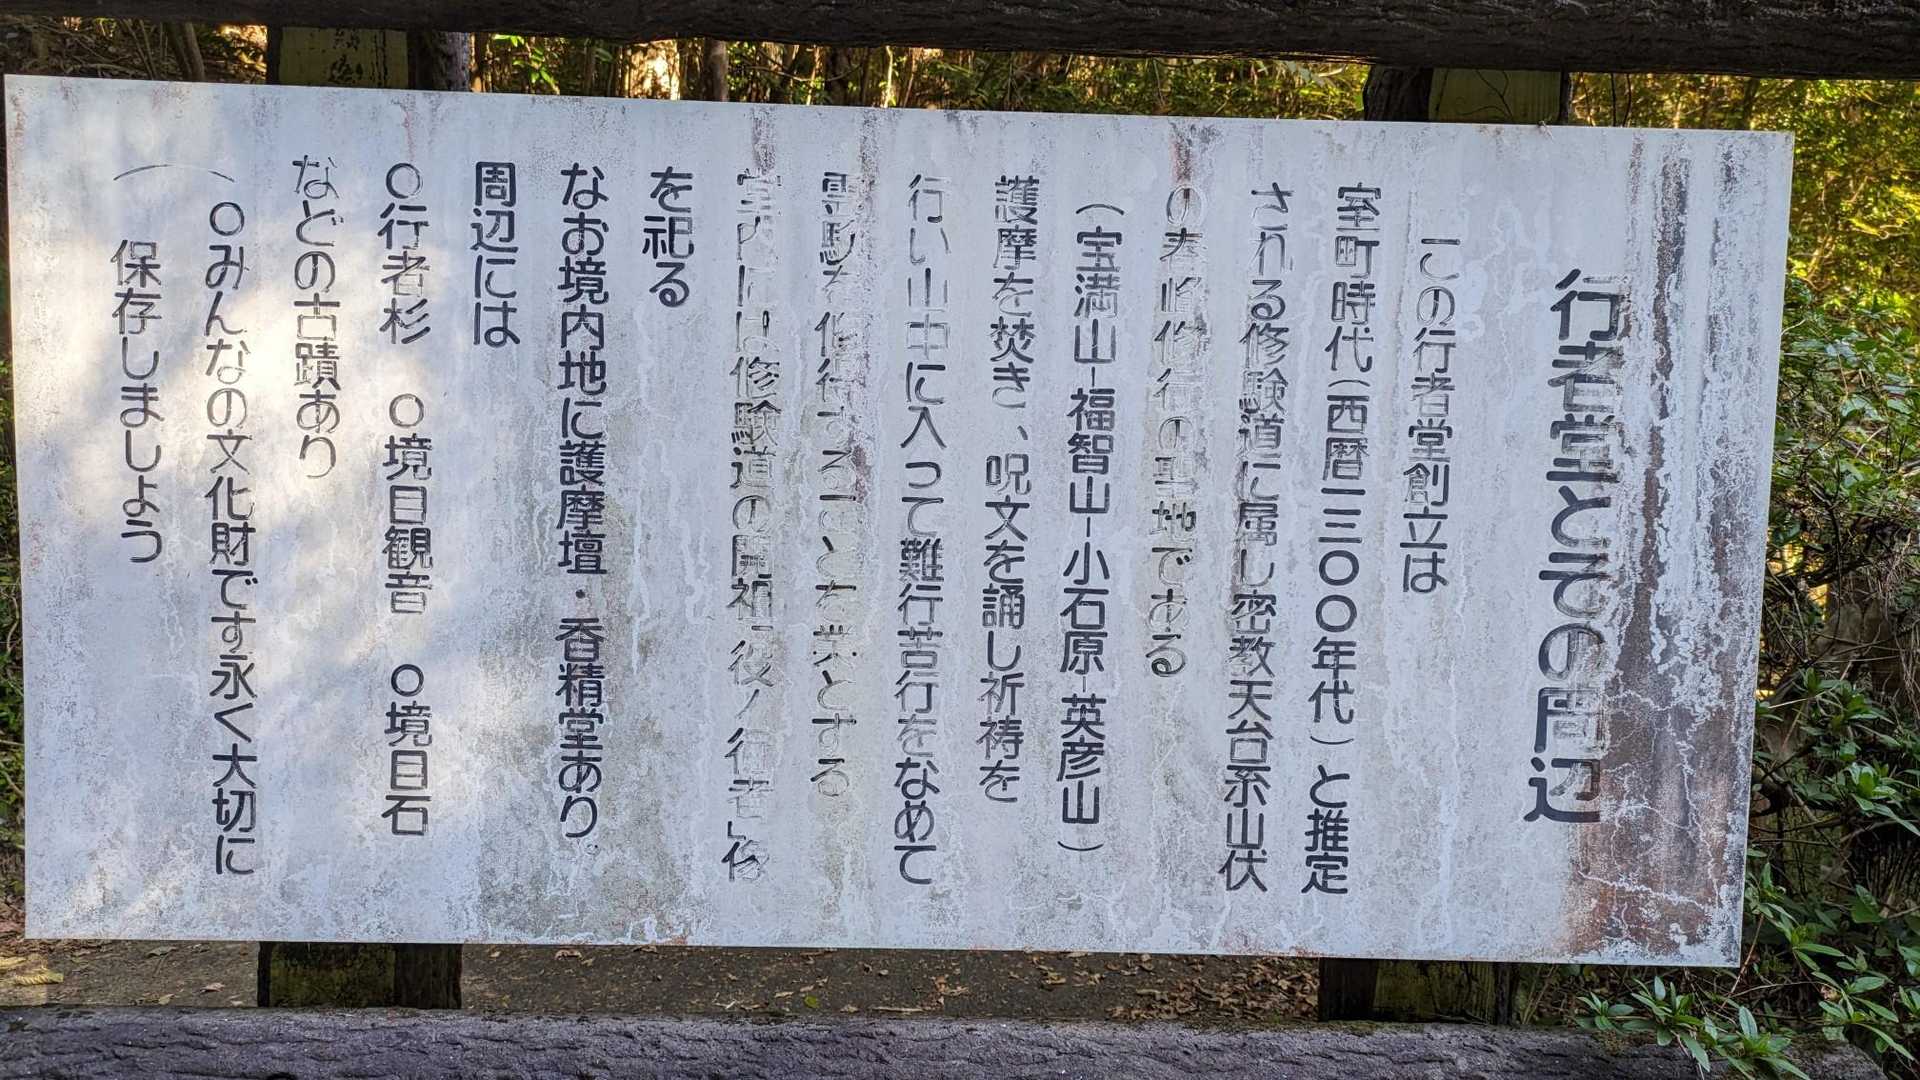 行者堂とその周辺
この行者堂創立は
室町時代(西暦一三〇〇年代)と推定
される修験道に属し密教天台系山伏
の春峰修行の聖地である
(宝満山-福智山-小石原-英彦山)
護摩を焚き、呪文を誦し祈祷を
行い山中に入って難行苦行をなめて
霊験を修得することを業とする
堂内には修験道の開祖「役ノ行者」像
を祀る
なお境内地に護摩壇・香精堂あり。
周辺には
〇行者杉 〇境目観音 〇境目石
などの古蹟あり
(〇みんなの文化財です永く大切に
(保存しましょう